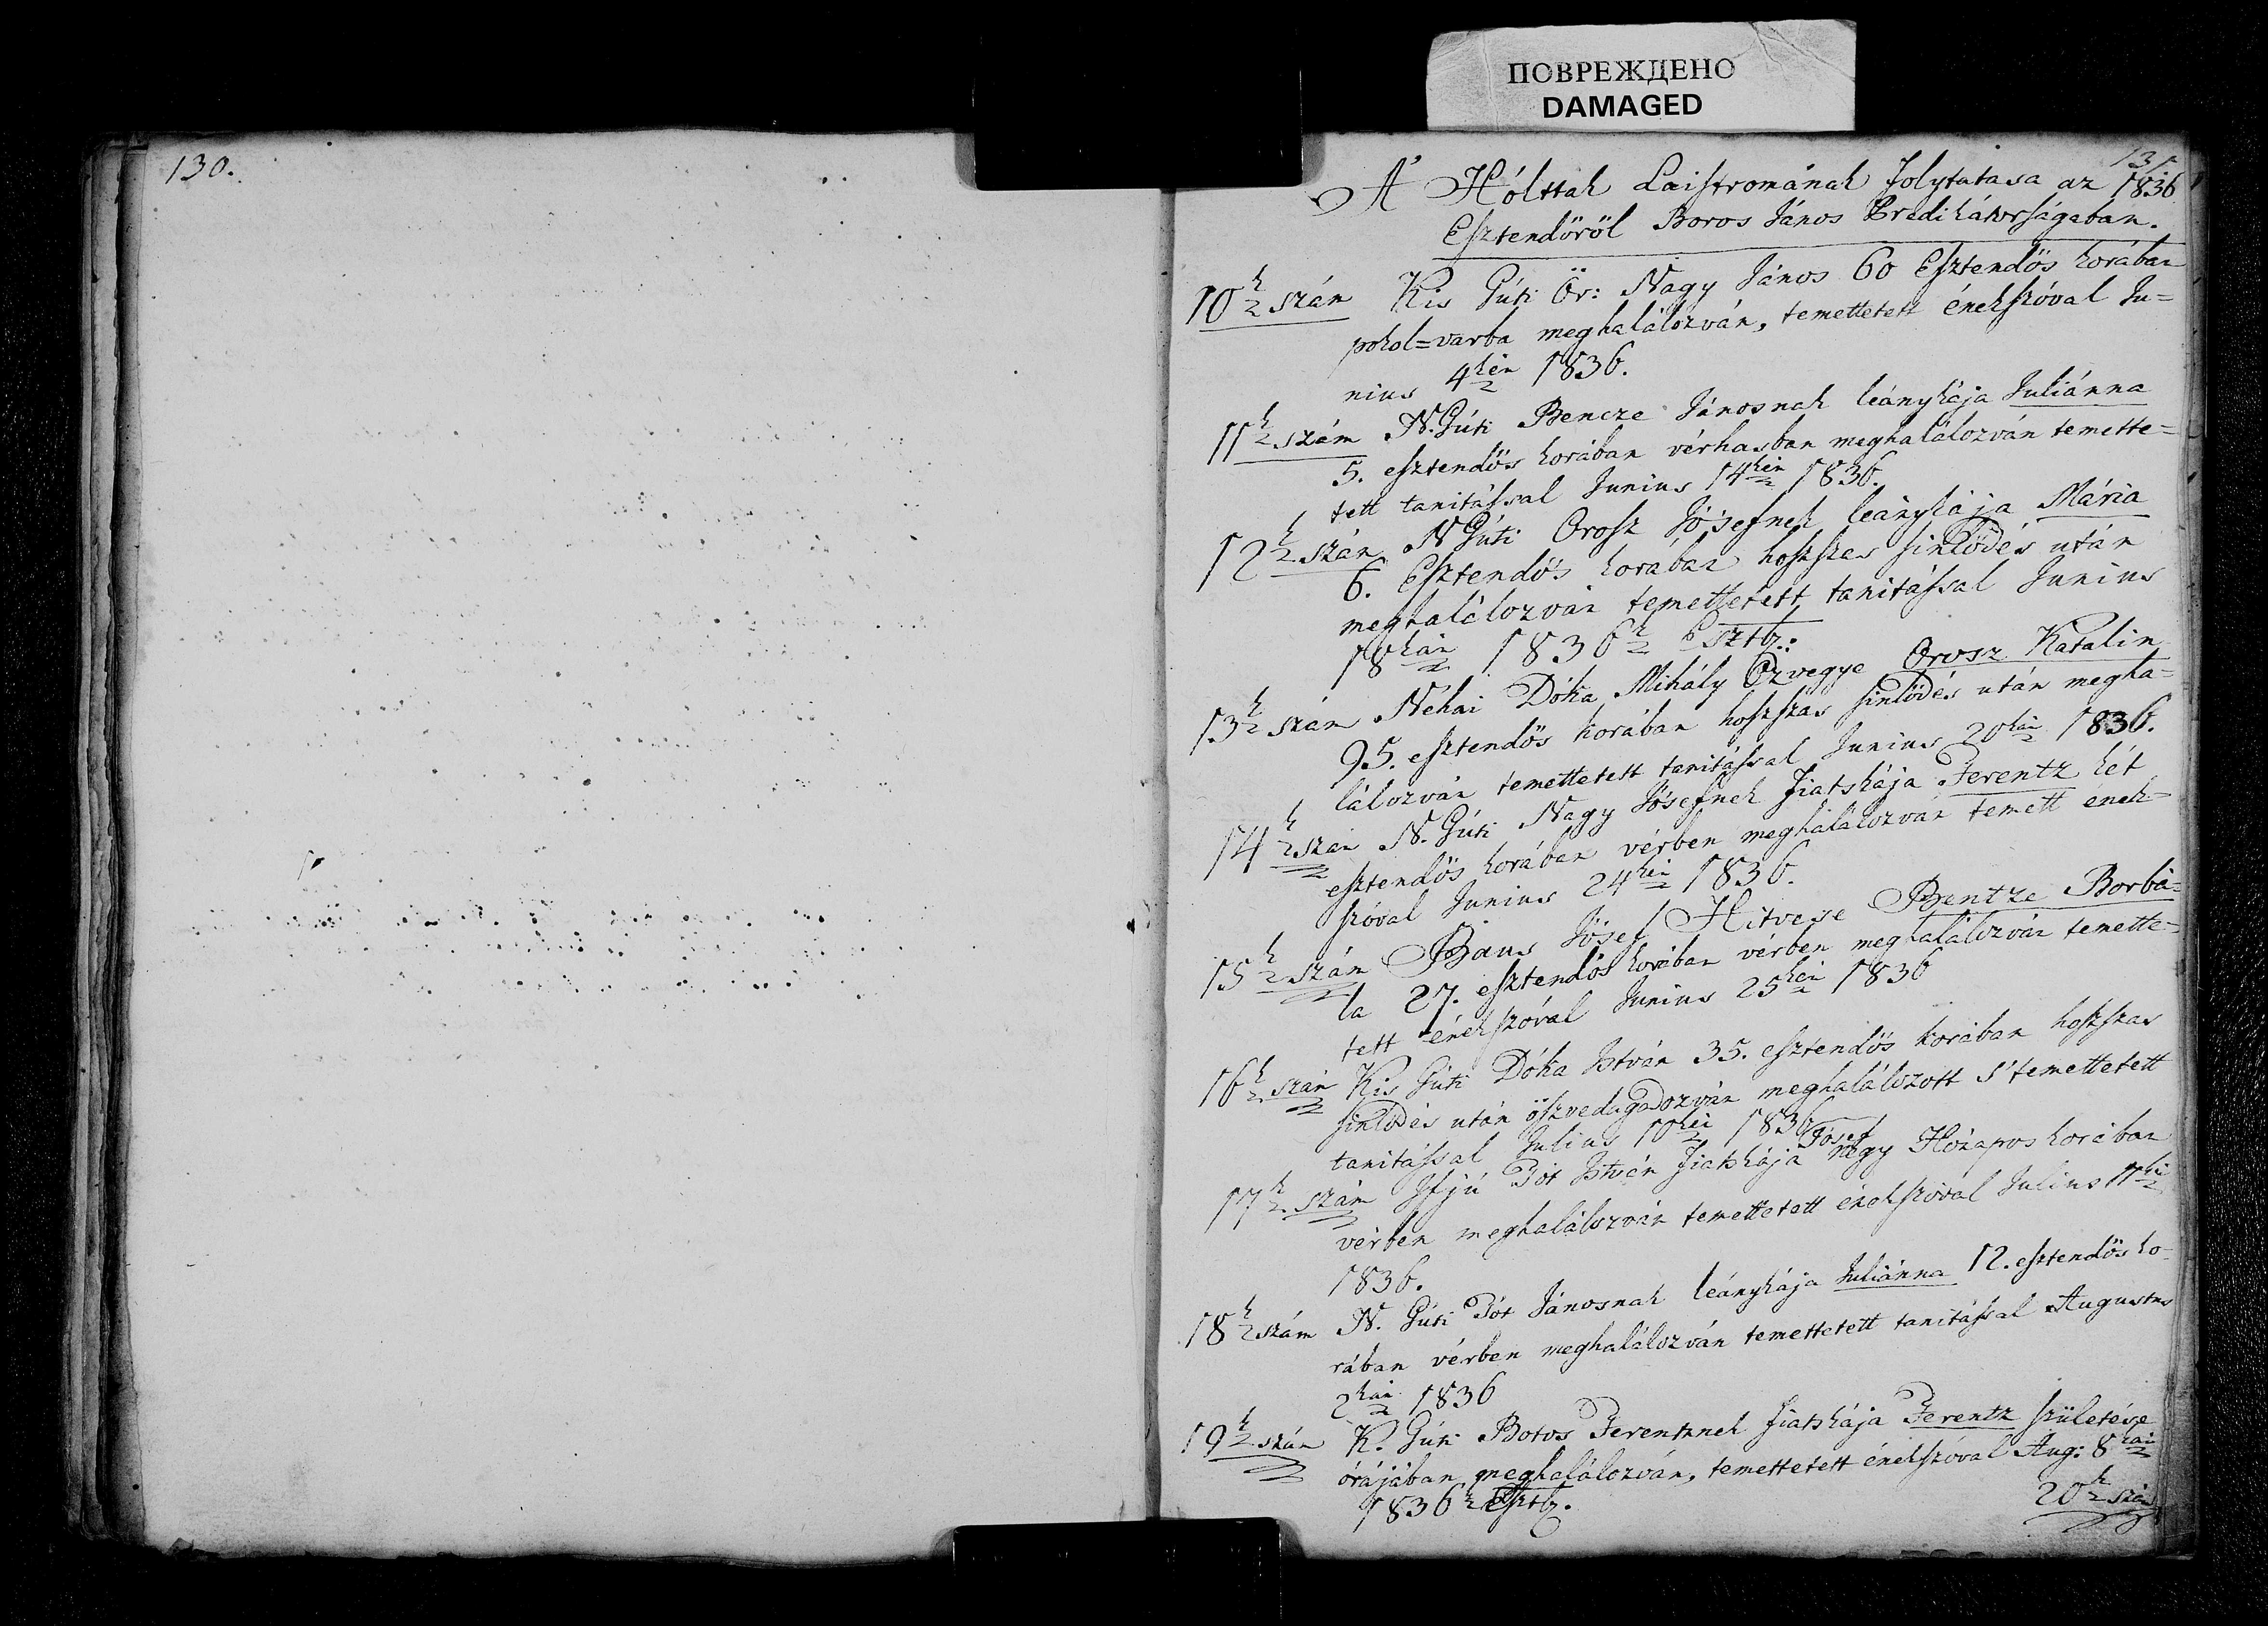 ПОВРЕЖДЕНО
DAMAGED
130.
131
A' Hólttak Laistromának folytatasa az 1836
Esztendőről Boros János Predikátorságaban.
10k szám Kis Gúti Ör: Nagy János 60 Esztendős korában
pokol=varba meghalálozván, temettetett énekszóval Ju=
nius 4kén 1836.
11k szám N. Gúti Bencze Jánosnak leánykája Juliánna
5. esztendős korában vérhasban meghalálozván temette=
tett tanitással Junius 14kén 1836.
12k szám N Gúti Orosz Jósefnek leánykája Mária
6. Esztendős korában hoszszas sinlődés után
meghalálozván temettetett tanitással Junius
18kán 1836k Esztb:
13k szám Néhai Dóka Mihály Özvegye Orosz Katalin
95. esztendős korában hoszszas sinlődés után megha=
lálozván temettetett tanitással Junius 20kán 1836.
14k szám N. Gúti Nagy Jósefnek fiatskája Ferentz hét
esztendős korában vérben meghalálozván temett ének=
szóval Junius 24kén 1836.
15k szám Bans Jósef Hitvese Bentze Borbá=
la 27. esztendős korában vérben meghalálozván temette=
tett énekszóval Junius 25kén 1836
16k szám Kis Gúti Dóka István 35. esztendős korában hoszszas
sinlődés után öszvedagadozván meghalálozott s' temettetett
tanitással Julius 10kén 1836
17k szám Ifjú Tót István fiatskája Jósef négy Hónapos korában
vérben meghalálozván temettetett énekszóval Julius 11kén
1836.
18k szám N. Gúti Tót Jánosnak leánykája Juliánna 12. esztendős ko=
rában vérben meghalálozván temettetett tanitással Augustus
2kán 1836
19k szám K. Gúti Botos Ferentznek fiatskája Ferentz születése
órájában meghalálozván, temettetett énekszóval Aug: 8kán
1836k Esztb.
20k szám